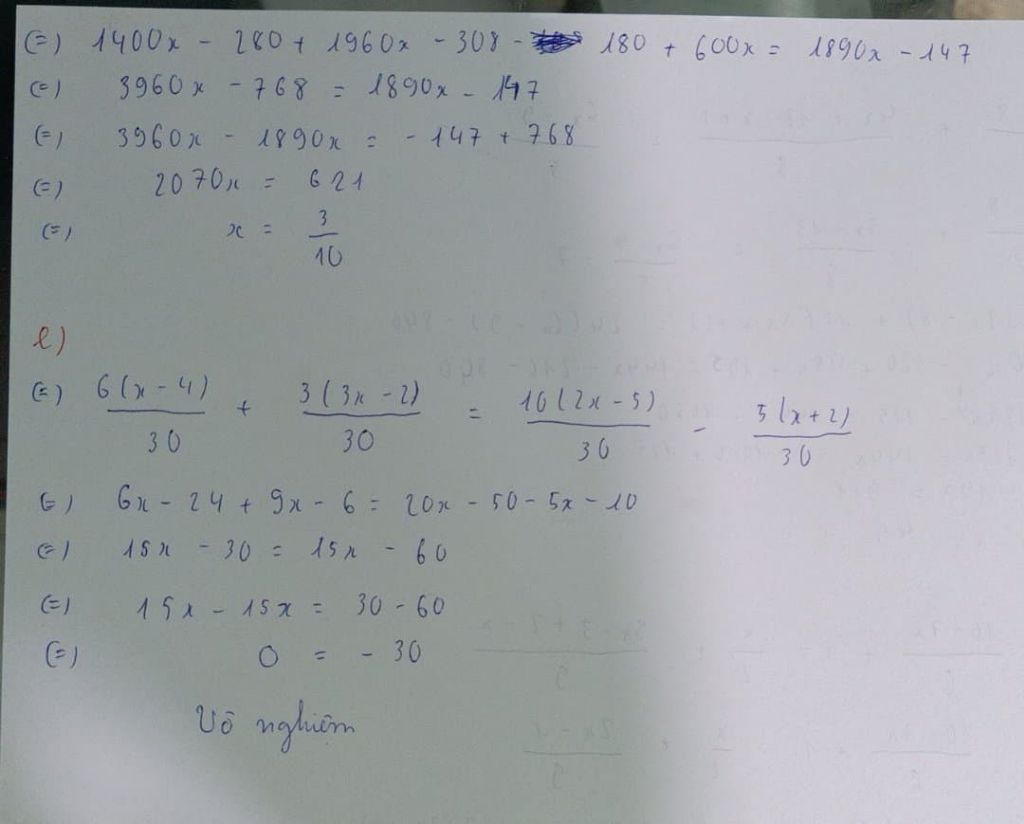 (=) 1400x - 280 + 1960x - 308 - 180 + 600x = 1890x - 147
(=) 3960x - 768 = 1890x - 147
(=) 3960x - 1890x = - 147 + 768
(=) 2070x = 621
(=) x = 3/10
e)
(=) 6(x-4)/30 + 3(3x-2)/30 = 10(2x-5)/30 - 5(x+2)/30
(=) 6x - 24 + 9x - 6 = 20x - 50 - 5x - 10
(=) 15x - 30 = 15x - 60
(=) 15x - 15x = 30 - 60
(=) 0 = - 30
Vô nghiệm